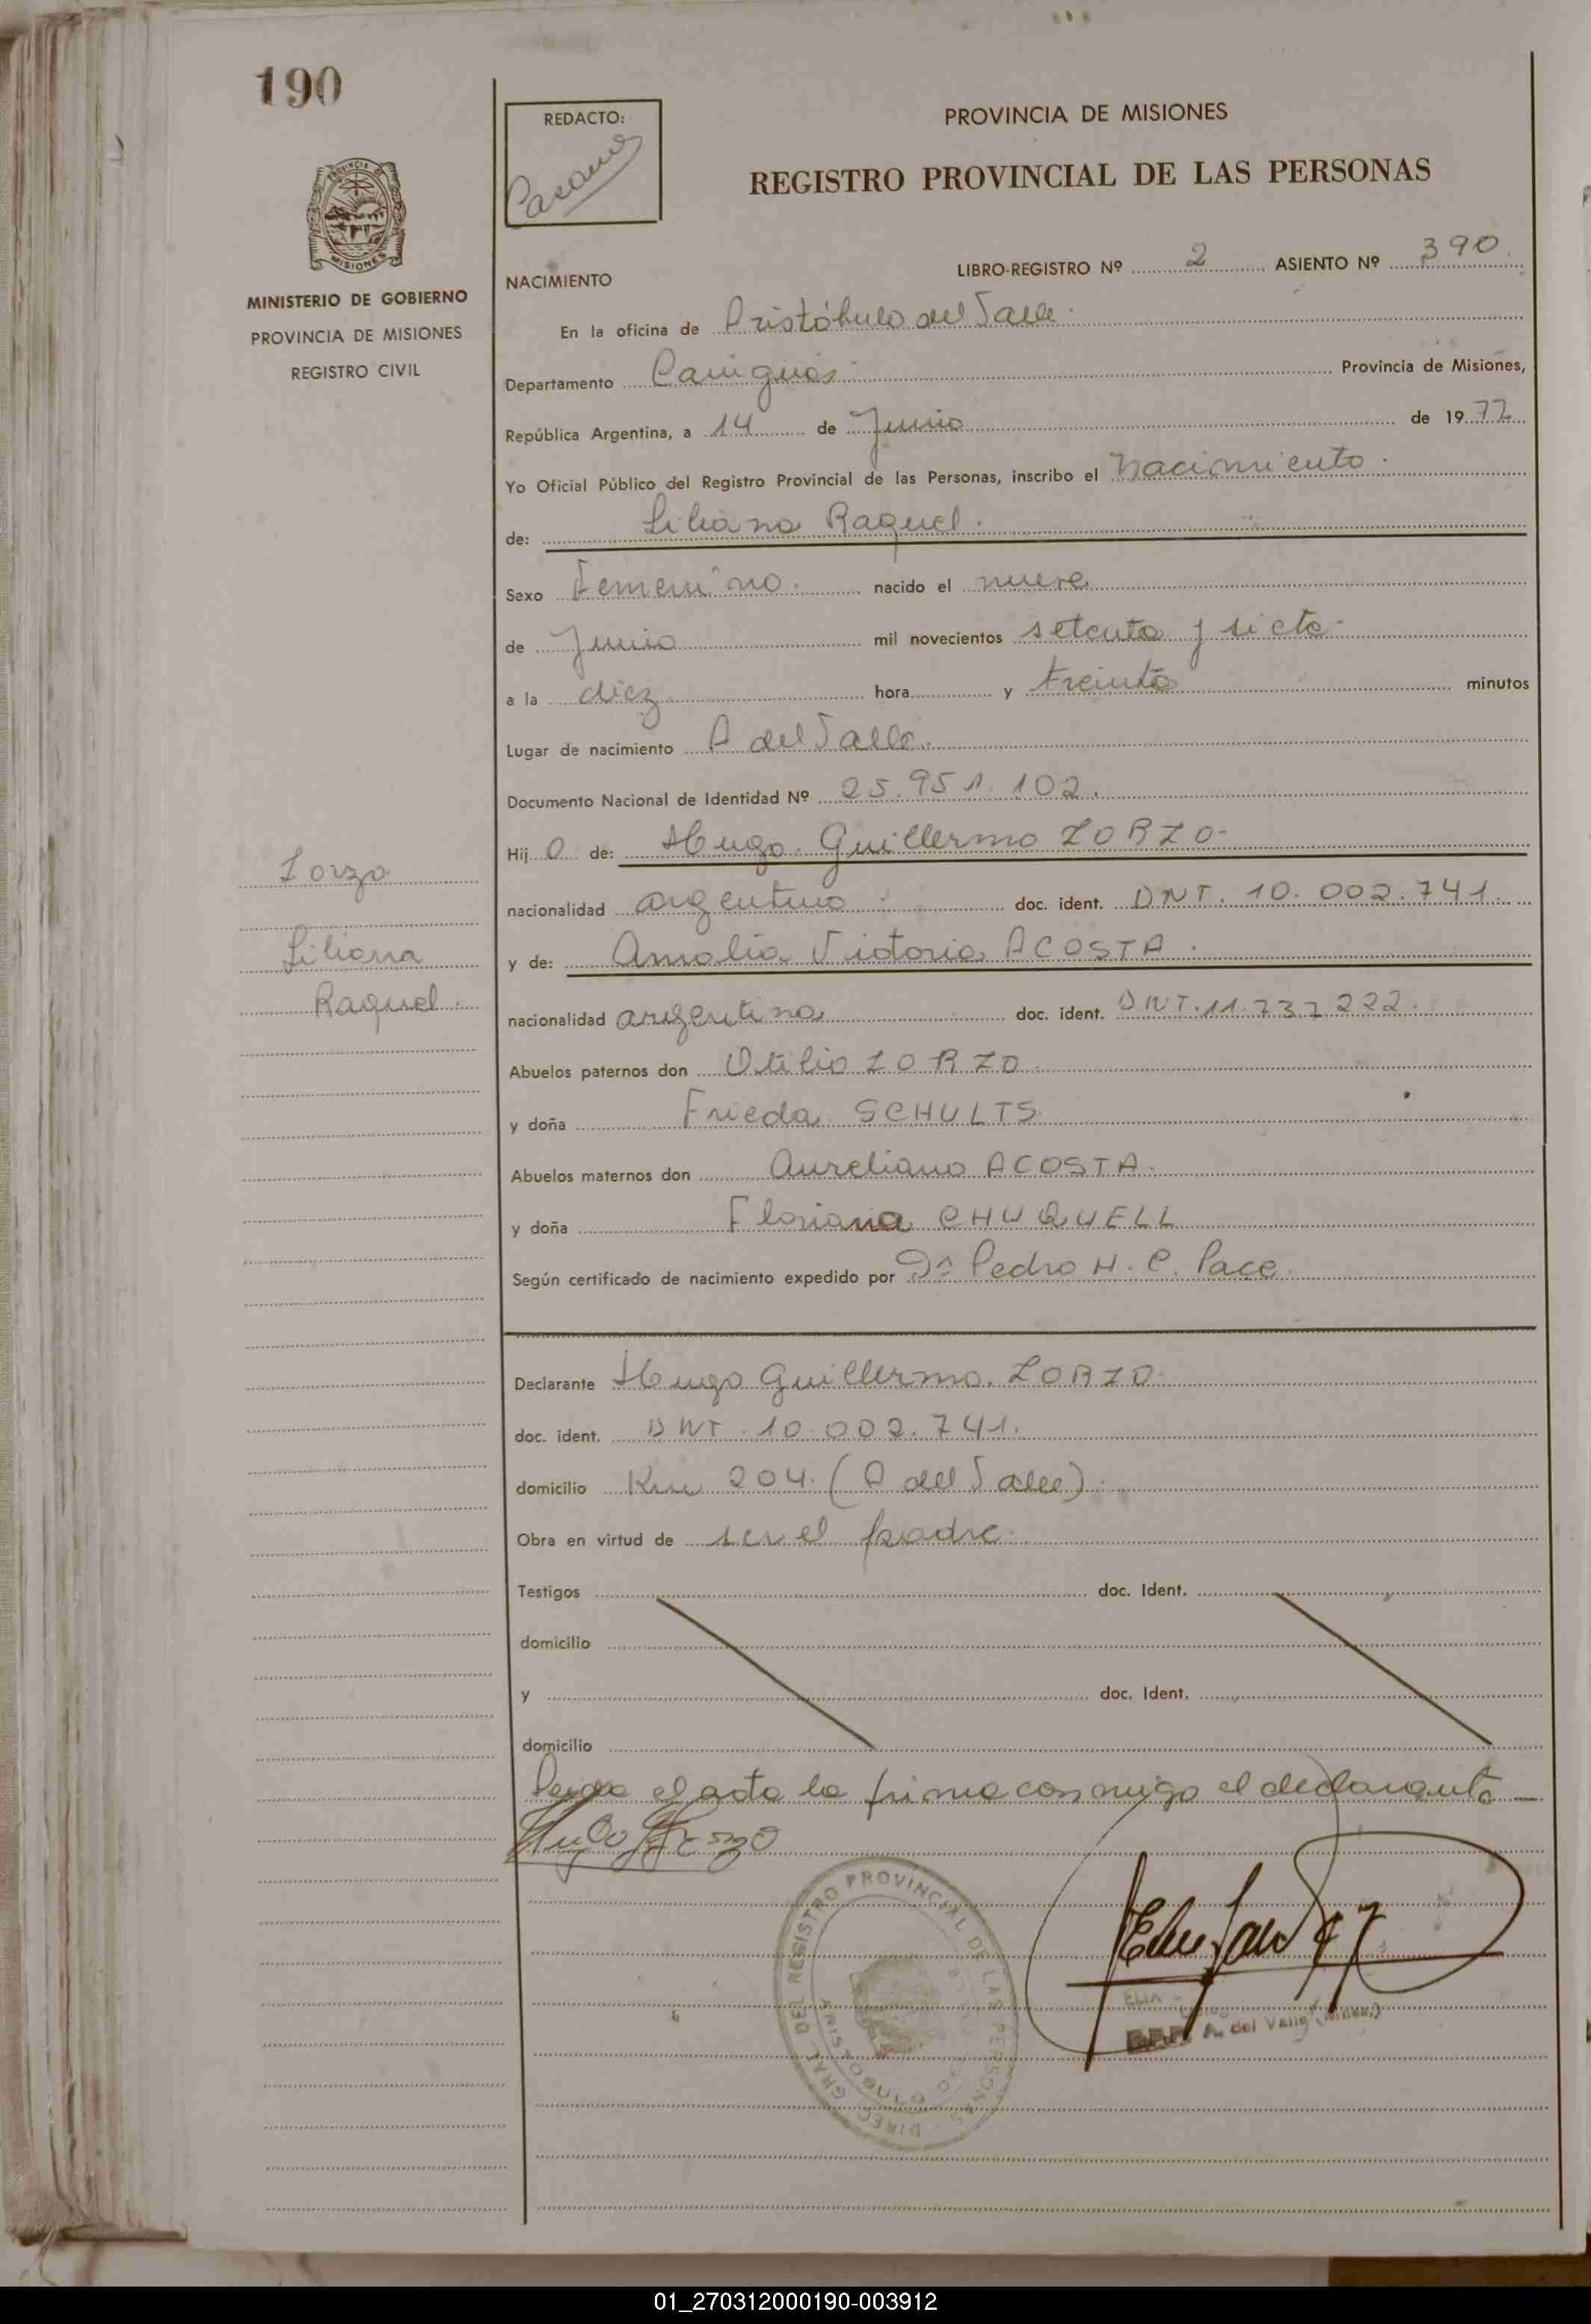 190
REDACTO:
PROVINCIA DE MISIONES
REGISTRO PROVINCIAL DE LAS PERSONAS
PROVINCIA DE
MISIONES
MINISTERIO DE GOBIERNO
PROVINCIA DE MISIONES
REGISTRO CIVIL
NACIMIENTO
LIBRO-REGISTRO Nº 2 ASIENTO Nº 390
En la oficina de Aristóbulo del Valle
Departamento Cainguás Provincia de Misiones,
República Argentina, a 14 de Junio de 1977
Yo Oficial Público del Registro Provincial de las Personas, inscribo el Nacimiento.
de: Liliana Raquel.
Sexo Femenino. nacido el nueve
de Junio mil novecientos setenta y siete
a la diez hora y treinta minutos
Lugar de nacimiento A del Valle.
Documento Nacional de Identidad Nº 25.951.102.
Hij a de: Hugo Guillermo ZORZO
nacionalidad argentino doc. ident. DNI. 10.002.741.
y de: Amalia Victoria ACOSTA.
nacionalidad argentina doc. ident. DNI. 11.737.222.
Abuelos paternos don Otilio ZORZO
y doña Frieda SCHULTS
Abuelos maternos don Aureliano ACOSTA.
y doña Floriana CHUQUELL
Según certificado de nacimiento expedido por Dr Pedro H. C. Pace
Zorzo
Liliana
Raquel.
Declarante Hugo Guillermo ZORZO
doc. ident. DNI. 10.002.741.
domicilio Km 204. (A del Valle).
Obra en virtud de ser el padre.
Testigos doc. Ident.
domicilio
y doc. Ident.
domicilio
Leida el acta la firma conmigo el declarante
Hugo Zorzo
DIREC. GRAL. DEL REGISTRO PROVINCIAL DE LAS PERSONAS
ARISTOBULO
A. del Valle
01_270312000190-003912